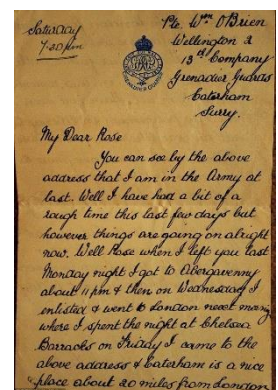 Saturday
7.30 pm
Pte. Wm O'Brien
Wellington 2
13th Company
Grenadier Guards
Caterham
Surry.
My Dear Rose
You can see by the above
address that I am in the Army at
last. Well I have had a bit of a
rough time this last few days but
however things are going on alright
now. Well Rose when I left you last
Monday night I got to Abergavenny
about 11 pm & then on Wednesday I
enlisted & went to London next morng
where I spent the night at Chelsea
Barracks on Friday I came to the
above address & Caterham is a nice
place about 20 miles from London